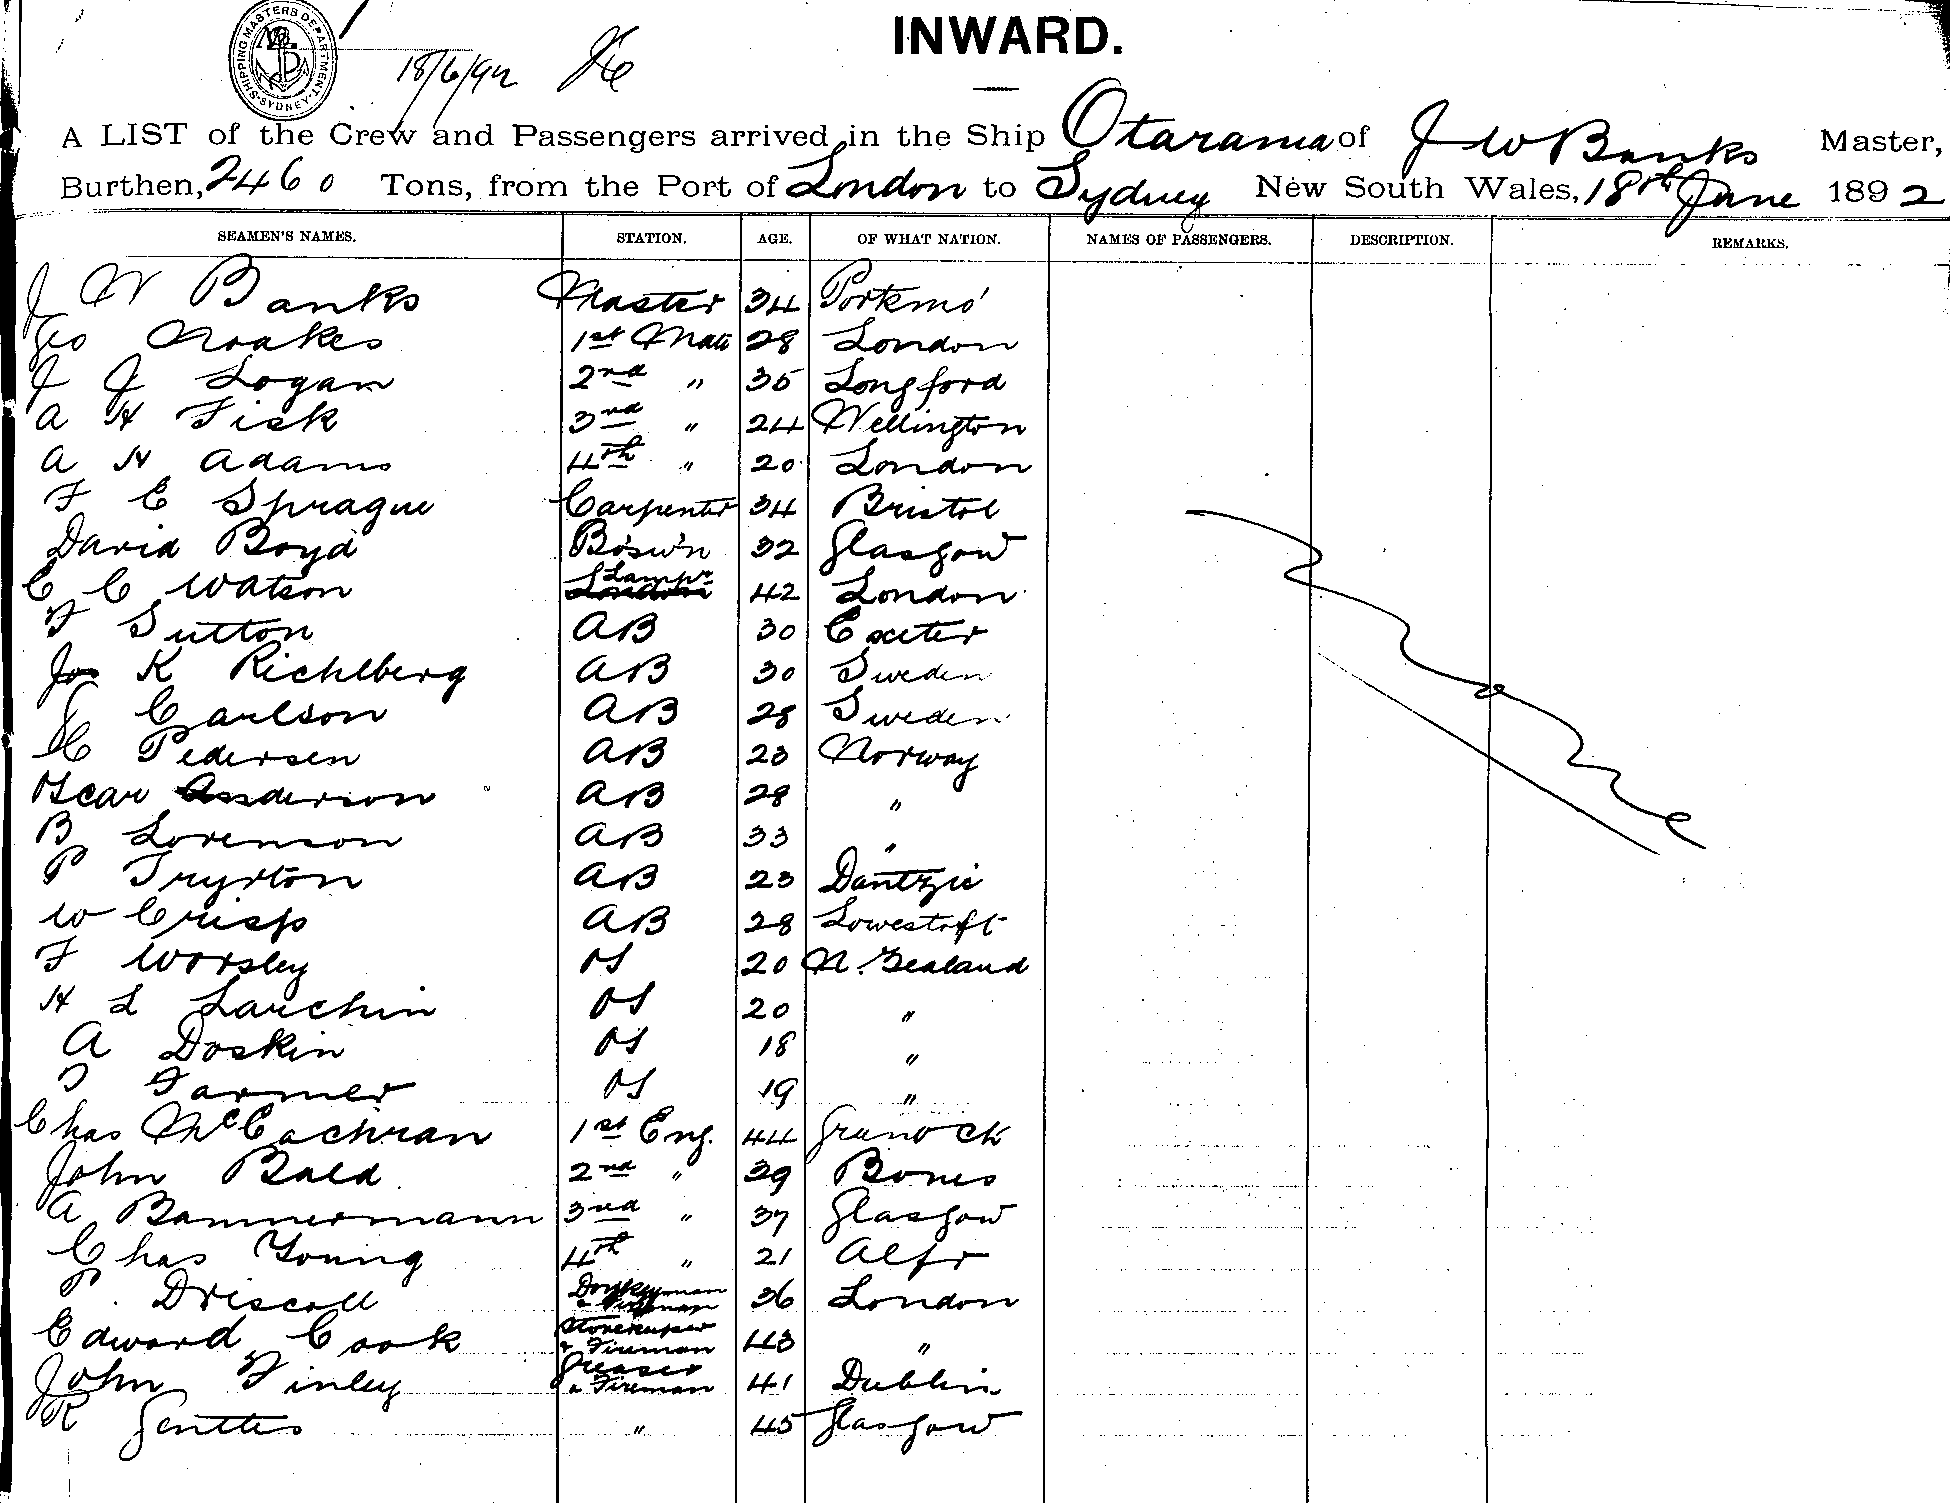 SHIPPING MASTERS DEPARTMENT. SYDNEY.
18/6/92
INWARD.
A LIST of the Crew and Passengers arrived in the Ship Otarama of J W Banks Master,
Burthen, 2460 Tons, from the Port of London to Sydney New South Wales, 18th June 1892
SEAMEN'S NAMES. STATION. AGE. OF WHAT NATION. NAMES OF PASSENGERS. DESCRIPTION. REMARKS.
J W Banks Master 34 Portmo'
Geo Noakes 1st Mate 28 London
J J Logan 2nd " 35 Longford
A H Fisk 3rd " 24 Wellington
A H Adams 4th " 20 London
F E Sprague Carpenter 34 Bristol
David Boyd Bosw'n 32 Glasgow
C C Watson Lampr 42 London
F Sutton AB 30 Exeter
Jos K Richlberg AB 30 Sweden
C Carlson AB 28 Sweden
H Pedersen AB 23 Norway
Oscar Anderson AB 28 "
B Lorenson AB 33 "
P AB 23 Dantzic
W Crisp AB 28 Lowestoft
F Worsley OS 20 N. Zealand
H L Larchin OS 20 "
A Doskin OS 18 "
T Farmer OS 19 "
Chas McCachran 1st Eng. 44 Grenock
John Bald 2nd " 39
A Bannermann 3rd " 37 Glasgow
Chas Young 4th " 21
P Driscoll Donkeyman & Fireman 36 London
Edward Cook Storekeeper & Fireman 43 "
John Finley Greaser & Fireman 41 Dublin
R " 45 Glasgow